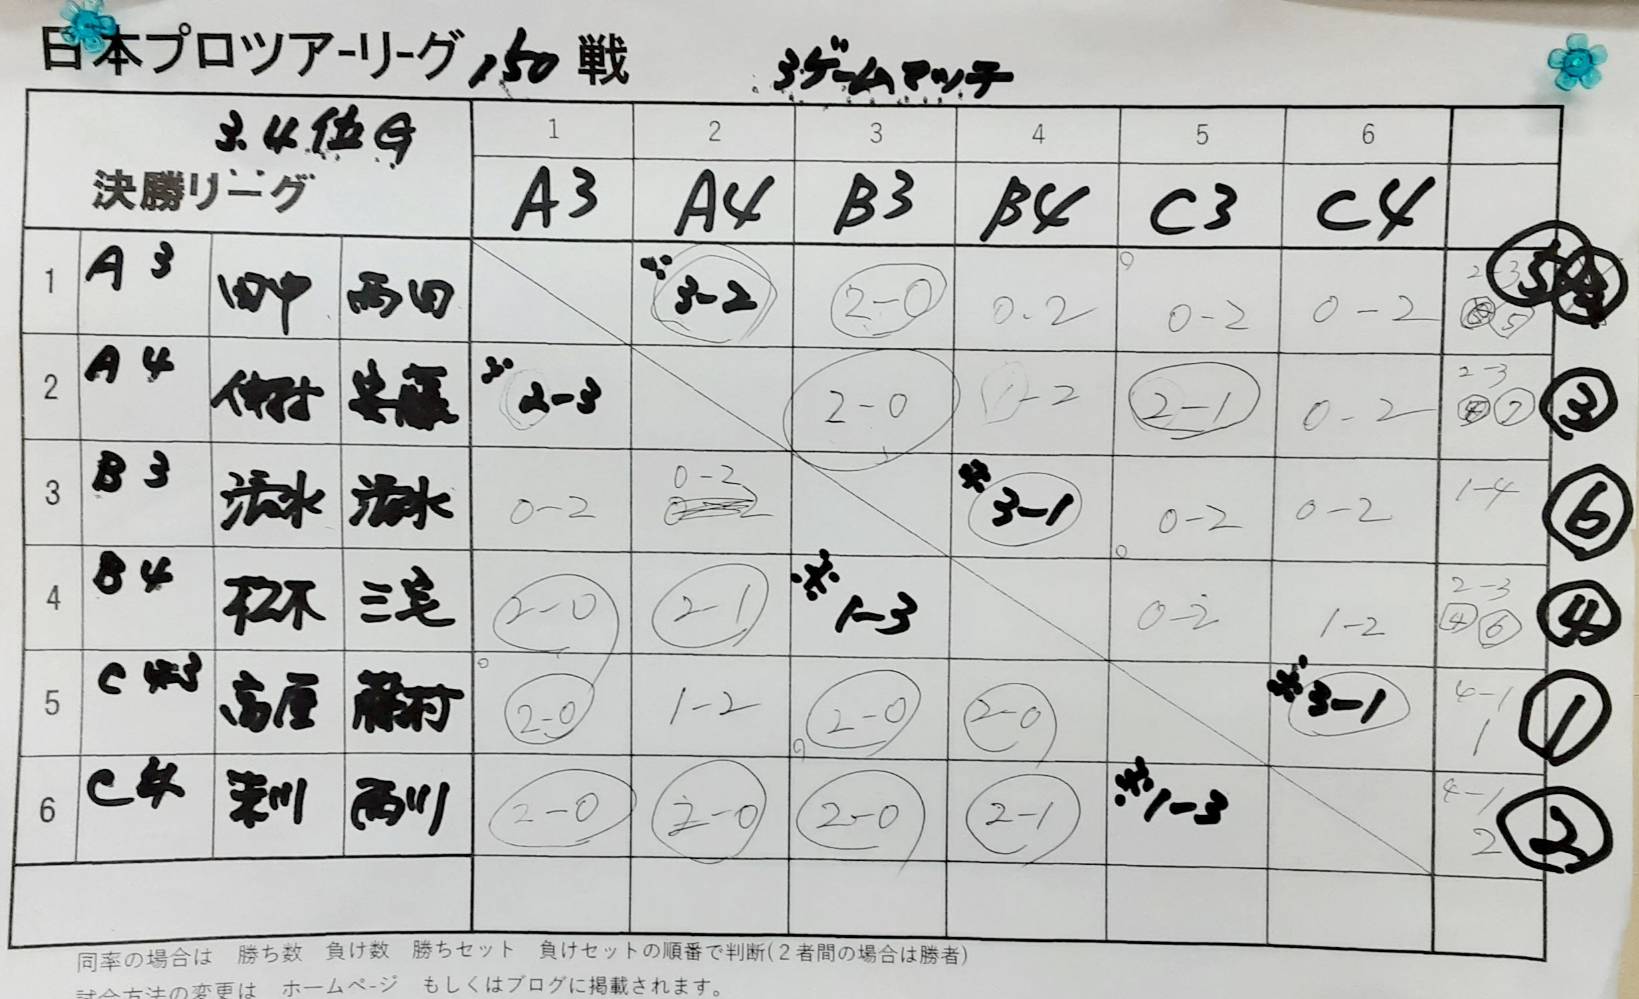 日本プロツアーリーグ 150 戦 3ゲームマッチ
3.4位G 1 2 3 4 5 6
決勝リーグ A3 A4 B3 B4 C3 C4
1 A3 田中 西田 ※3-2 2-0 0-2 0-2 0-2 2-3 5 ⑤
2 A4 安藤 ※2-3 2-0 1-2 2-1 0-2 2-3 7 ③
3 B3 清水 清水 0-2 0-2 ※3-1 0-2 0-2 1-4 ⑥
4 B4 松木 三宅 2-0 2-1 ※1-3 0-2 1-2 2-3 4 6 ④
5 C3 高屋 藤村 2-0 1-2 2-0 2-0 ※3-1 4-1 1 ①
6 C4 西川 2-0 2-0 2-0 2-1 ※1-3 4-1 2 ②
同率の場合は 勝ち数 負け数 勝ちセット 負けセットの順番で判断(2者間の場合は勝者)
試合方法の変更は ホームページ もしくはブログに掲載されます。